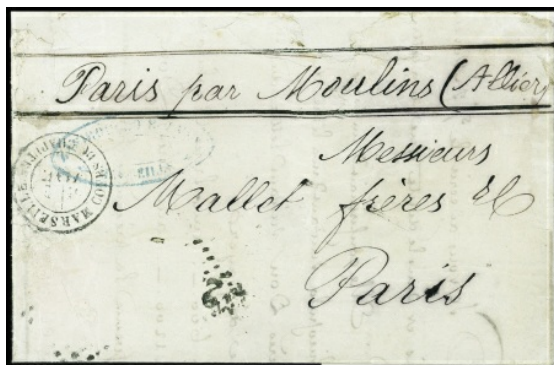 Paris par Moulins (Allier)
Messieurs
Mallet frères &C
Paris
MARSEILLE